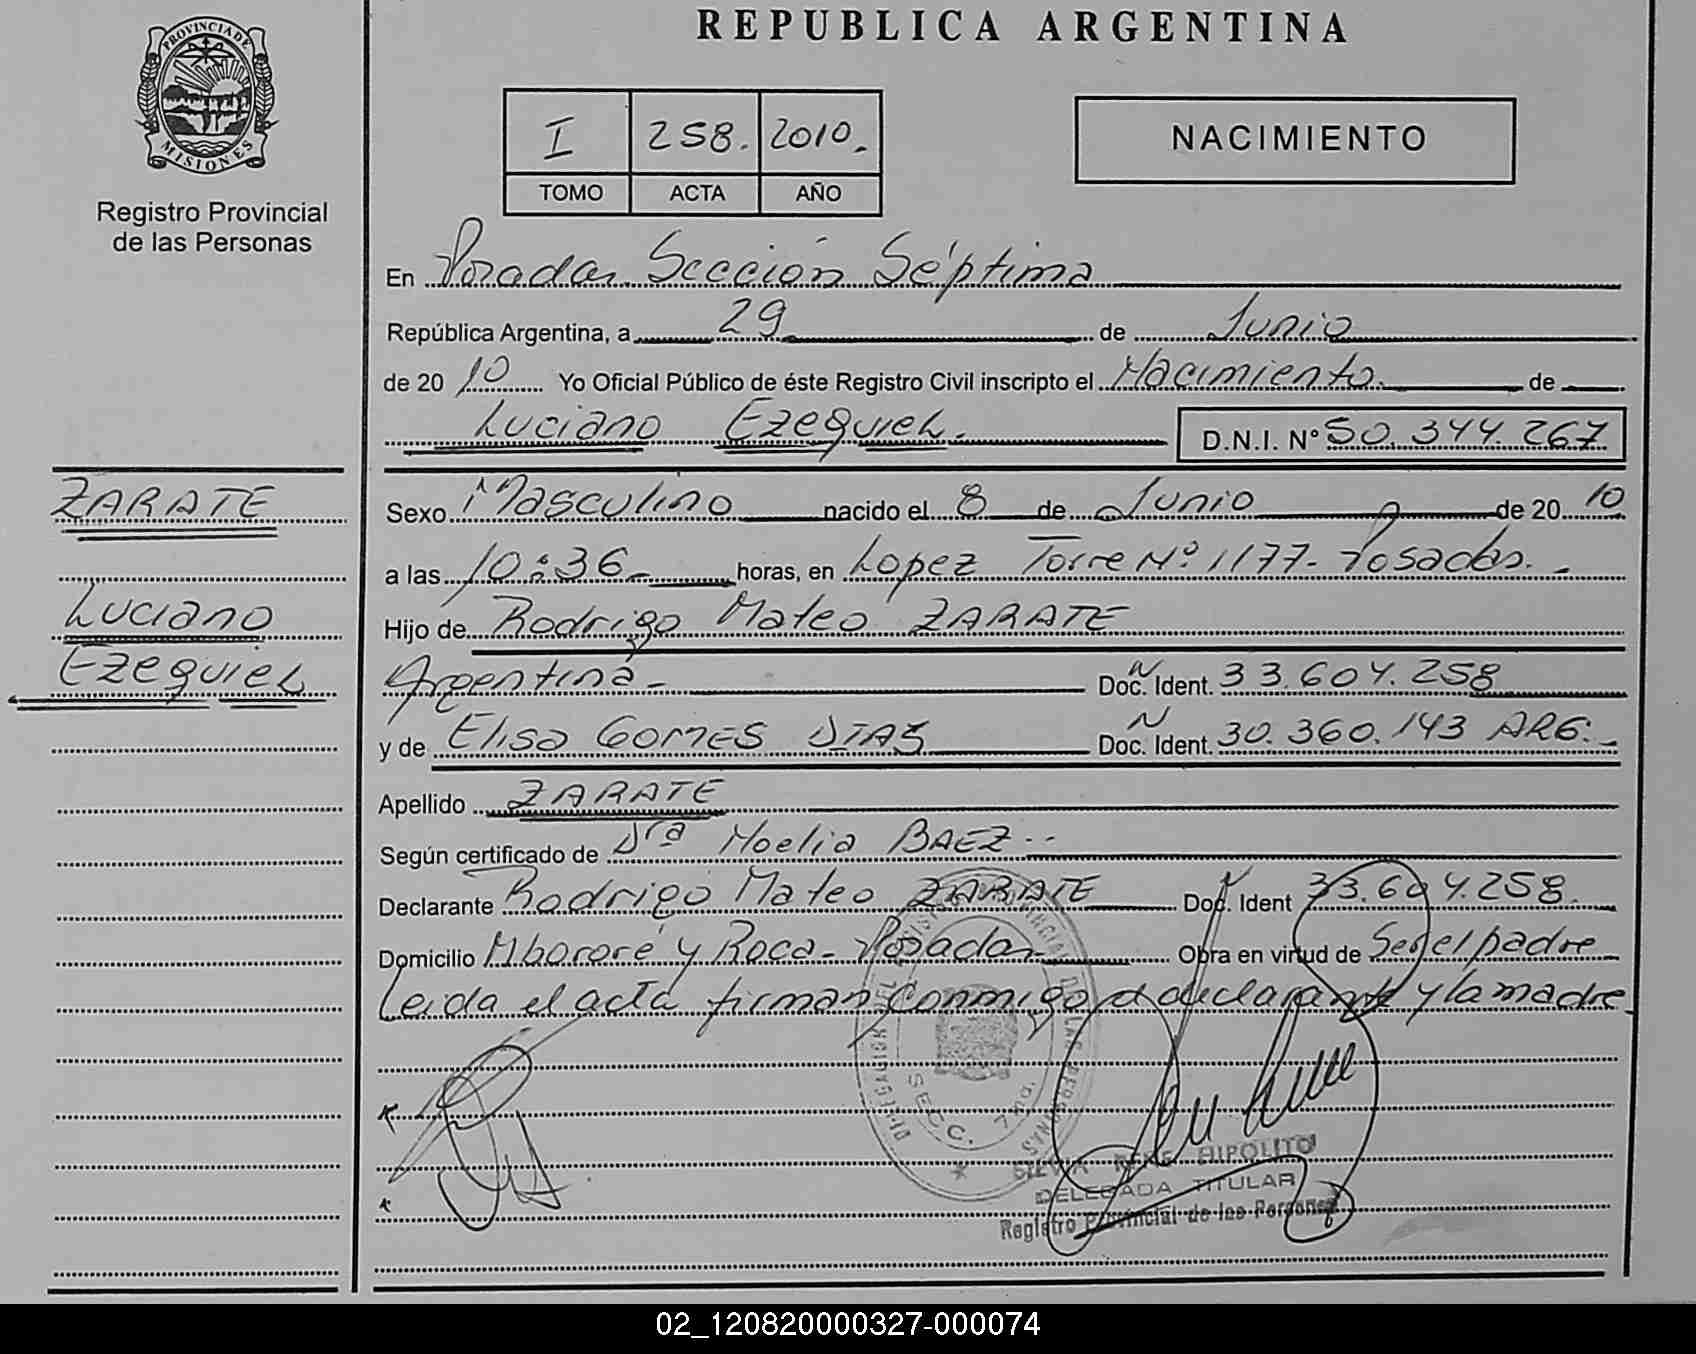 REPUBLICA ARGENTINA
PROVINCIA DE
MISIONES
Registro Provincial
de las Personas
I 258. 2010.
TOMO ACTA AÑO
NACIMIENTO
En Posadas Sección Séptima
República Argentina, a 29 de Junio
de 2010 Yo Oficial Público de éste Registro Civil inscripto el Nacimiento de
Luciano Ezequiel. D.N.I. N° 50.344.267
ZARATE
Luciano
Ezequiel
Sexo Masculino nacido el 8 de Junio de 2010
a las 10:36 horas, en Lopez Torre N° 1177 - Posadas.-
Hijo de Rodrigo Mateo ZARATE
Argentina- Doc. Ident. 33.604.258
y de Elisa GOMES DIAS Doc. Ident. 30.360.143 ARG.-
Apellido ZARATE
Según certificado de Dra Noelia BAEZ..
Declarante Rodrigo Mateo ZARATE Doc. Ident 33.604.258.
Domicilio Mbororé y Roca - Posadas Obra en virtud de Ser el padre
Leida el acta firman conmigo el declarante y la madre
DELEGACION DEL REGISTRO PROVINCIAL DE LAS PERSONAS
SECC. 7ma.
SILVIA RENE HIPOLITO
DELEGADA TITULAR
Registro Provincial de las Personas
02_120820000327-000074